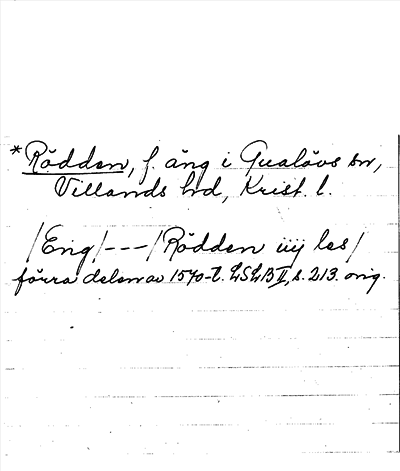 *Rödden, f. äng i Gualövs sn,
Villands hd, Krist. l.
/Eng/---/Rödden iiij les/
förra delen av 1570-t. LSLB II, s. 213. orig.